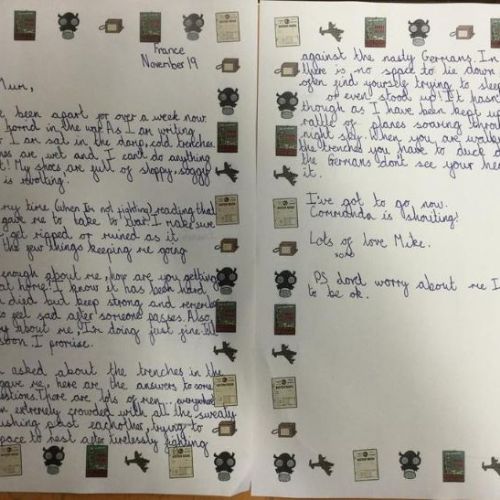 France
November 19
Mum,
been apart for over a week now
horrid in the war. As I am writing
I am sat in the damp, cold trenches.
are wet and I can't do anything
! My shoes are full of sloppy, soggy
is revolting.
my time (when Im not fighting) reading that
gave me to take to war. I make sure
get ripped or ruined as it
the few things keeping me going
enough about me, how are you getting
at home? I know it has been hard
died but keep strong and remember
to feel sad after someone passes. Also
about me, Im doing just fine. Ill
soon I promise.
asked about the trenches in the
gave me, here are the answers to some
There are lots of men... everywhere
extremely crowded with all the sweaty
pushing past eachother, trying to
space to rest after tirelessly fighting
against the nasty Germans. In
there is no space to lie down
often find yourself trying to sleep
or even stood up! It hasn
though as I have been kept up
rattle of planes soaring throu
night sky. When you are walk
the trenches you have to duck d
the Germans dont see your hea
it.
I've got to go now.
is shouting!
Lots of love Mike.
xoxo
PS worry about me I
to be ok.